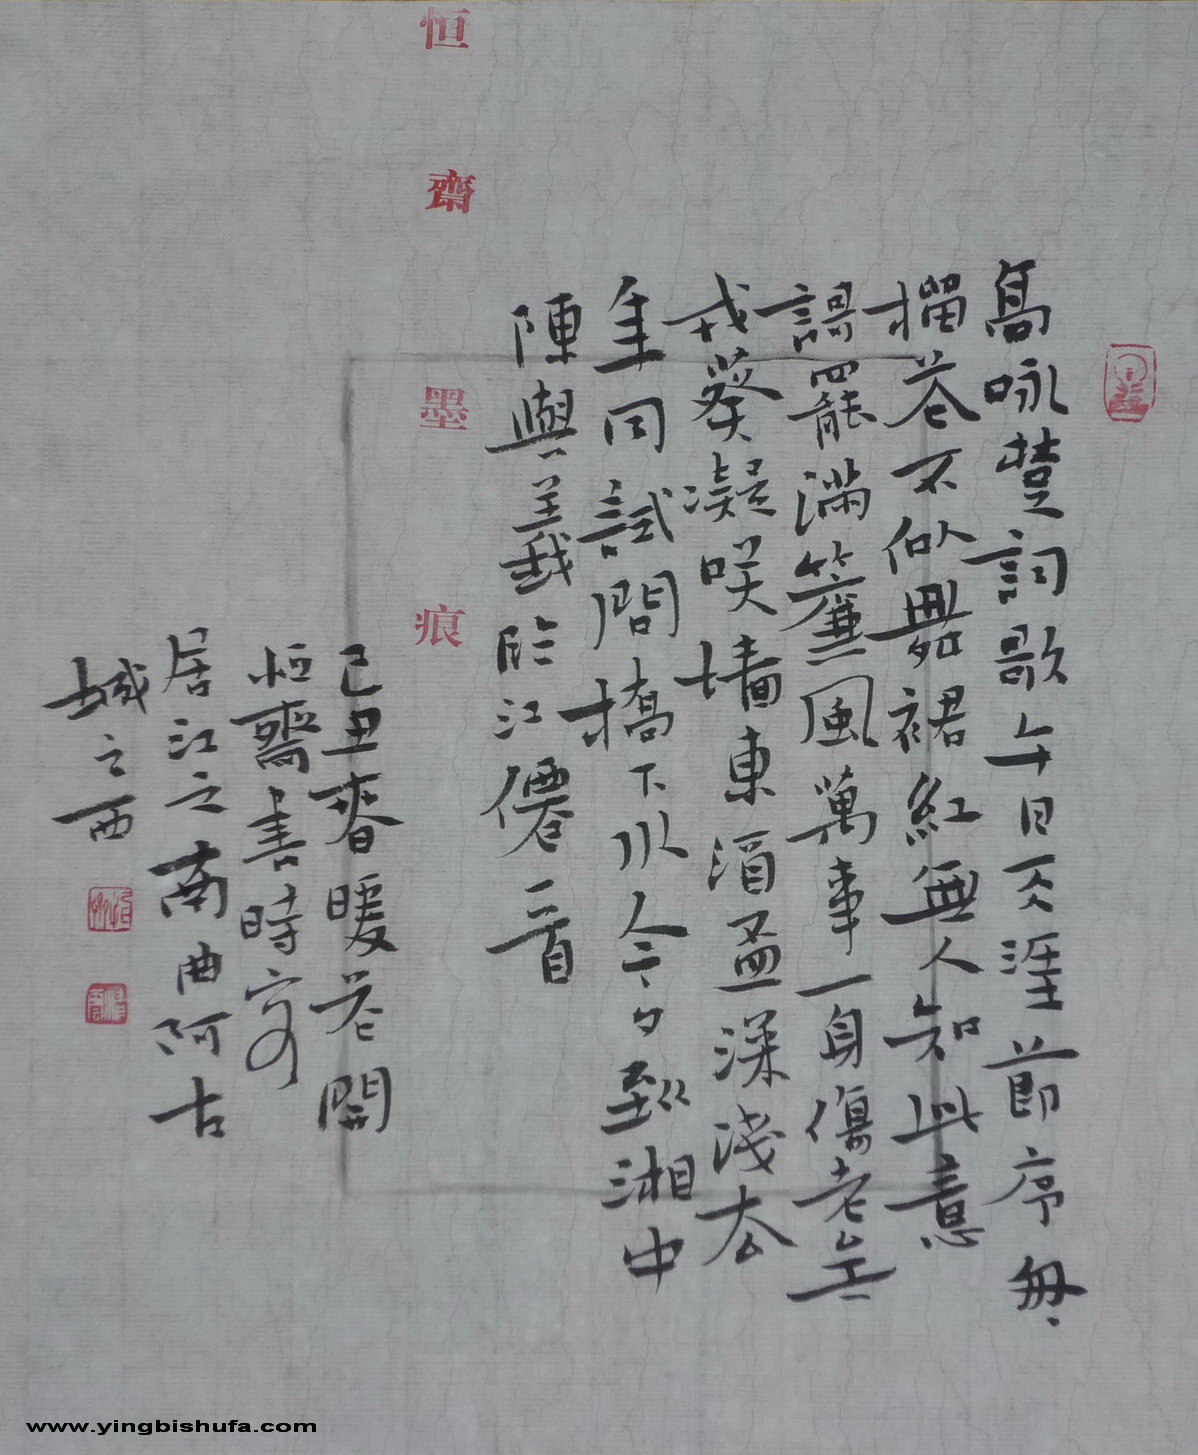 高咏楚詞歌午日天涯節序匆匆
榴花不似舞裙紅無人知此意
謌罷滿簾風萬事一身傷老矣
戎葵凝咲墻東酒盃深淺去
年同試問橋下水今夕到湘中
陳與義臨江僊一首
恒齋墨痕
己丑春暖花開
恒齋書時客
居江之南曲阿古
城之西
www.yingbishufa.com